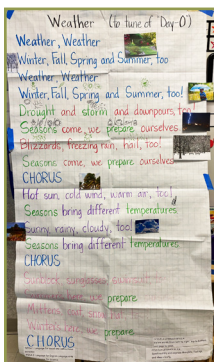 Weather (to tune of "Day-O")
Weather, Weather
Winter, Fall, Spring and Summer, too
Weather, Weather
Winter, Fall, Spring and Summer, too!
Drought and storm and downpours, too!
Seasons come, we prepare ourselves
Blizzards, freezing rain, hail, too!
Seasons come, we prepare ourselves
CHORUS
Hot sun, cold wind, warm air, too!
Seasons bring different temperatures
Sunny, rainy, cloudy, too!
Seasons bring different temperatures
CHORUS
prepare
prepare
CHORUS